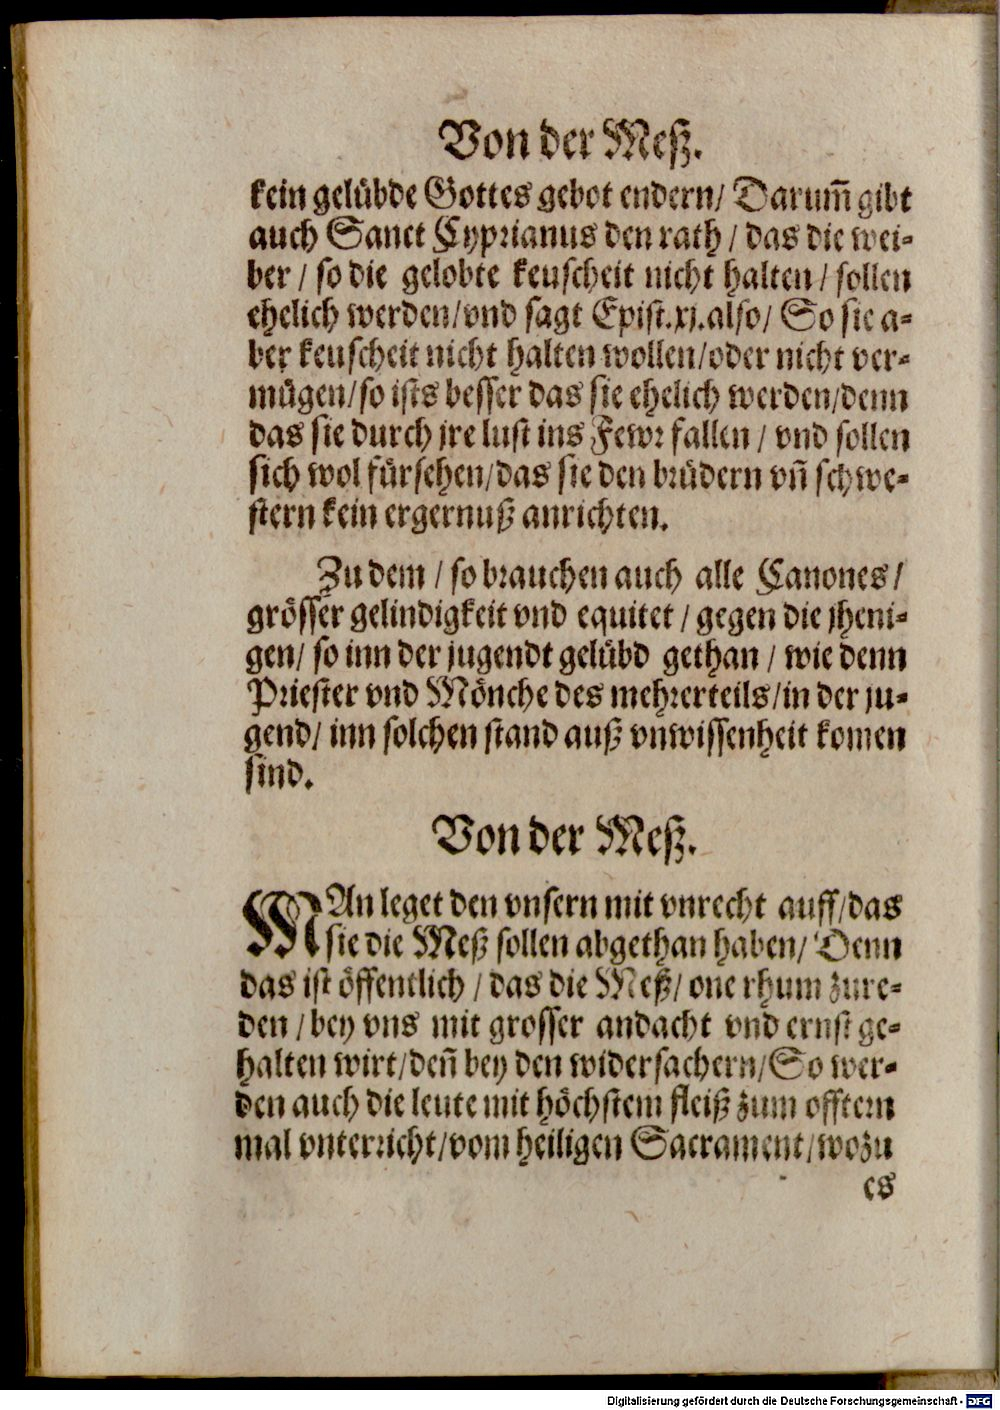 Von der Meß.
kein gelübde Gottes gebot endern/ Darum̃ gibt
auch Sanct Cyprianus den rath / das die wei-
ber / so die gelobte keuscheit nicht halten / sollen
ehelich werden/vnd sagt Epist.xj.also/ So sie a-
ber keuscheit nicht halten wollen/oder nicht ver-
mügen/so ists besser das sie ehelich werden/denn
das sie durch jre lust ins Fewr fallen / vnd sollen
sich wol fürsehen/das sie den brüdern vñ schwe-
stern kein ergernuß anrichten.
Zu dem / so brauchen auch alle Canones /
grösser gelindigkeit vnd equitet / gegen die jheni-
gen/ so inn der jugendt gelübd gethan / wie denn
Priester vnd Mönche des mehrerteils/in der ju-
gend/ inn solchen stand auß vnwissenheit komen
sind.
Von der Meß.
MAn leget den vnsern mit vnrecht auff/das
sie die Meß sollen abgethan haben/ Denn
das ist öffentlich / das die Meß/ one rhum zure-
den / bey vns mit grosser andacht vnd ernst ge-
halten wirt/deñ bey den widersachern/So wer-
den auch die leute mit höchstem fleiß zum offtern
mal vnterricht/vom heiligen Sacrament/wozu
es
Digitalisierung gefördert durch die Deutsche Forschungsgemeinschaft - DFG